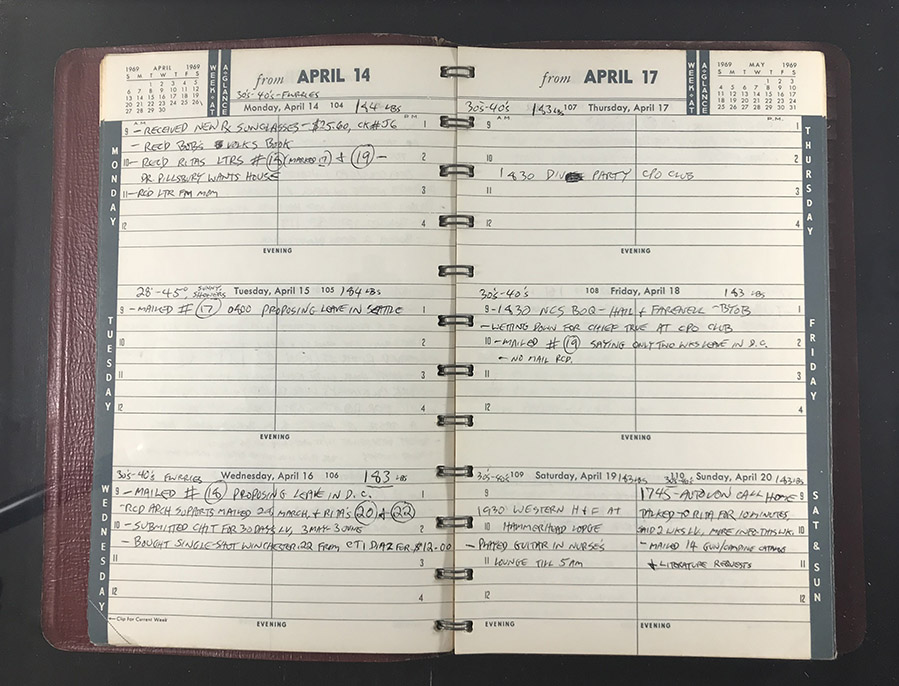 1969 APRIL 1969
S M T W T F S
1 2 3 4 5
6 7 8 9 10 11 12
13 14 15 16 17 18 19
20 21 22 23 24 25 26
27 28 29 30
WEEK·AT A·GLANCE
from APRIL 14
30's-40's-FLURRIES
Monday, April 14 104 184 LBS
MONDAY
A M P M
9 - RECEIVED NEW Rx SUNGLASSES - $25.60, CK#J6 1
- REC'D BOB'S VOLKS BOOK
10 - REC'D RITAS LTRS # 18 (MARKED 17) & 19 - 2
DR PILLSBURY WANTS HOUSE
11 - RCD LTR FM MOM 3
12 4
EVENING
28°-45° SUNNY, SHOWERS Tuesday, April 15 105 184 LBS
TUESDAY
9 - MAILED # 17 0800 PROPOSING LEAVE IN SEATTLE 1
10 2
11 3
12 4
EVENING
30's-40's FLURRIES Wednesday, April 16 106 183 LBS
WEDNESDAY
9 - MAILED # 18 PROPOSING LEAVE IN D.C. 1
RCD ARCH SUPARTS MAILED 24 MARCH, & RITAS 20 & 22
10 - SUBMITTED CHIT FOR 30 DAYS LV, 3 MAY-3 JUNE 2
- BOUGHT SINGLE-SHOT WINCHESTER .22 FROM CT1 DIAZ FOR $12.00
11 3
12 4
←Clip For Current Week EVENING
from APRIL 17
WEEK·AT A·GLANCE
1969 MAY 1969
S M T W T F S
1 2 3
4 5 6 7 8 9 10
11 12 13 14 15 16 17
18 19 20 21 24
25 26 27 28 29 30 31
30's-40's 183 LBS 107 Thursday, April 17
THURSDAY
A M P.M.
9 1
10 2
1830 PARTY CPO CLUB
11 3
12 4
EVENING
30's-40's 108 Friday, April 18 183 LBS
FRIDAY
9 - 1830 NCS BOQ - HAIL & FAREWELL - BYOB 1
- WETTING DOWN FOR CHIEF TRUE AT CPO CLUB
10 - MAILED # 19 SAYING ONLY TWO WKS LEAVE IN D.C. 2
- NO MAIL RCD.
11 3
12 4
EVENING
30's-40's 109 Saturday, April 19 183 LBS
9
1930 WESTERN H & F AT
10 HAMMERHEAD LODGE
- PLAYED GUITAR IN NURSE'S
11 LOUNGE TILL 5 AM
12
EVENING
110 30's-40's Sunday, April 20 183 LBS
SAT & SUN
1745 - AUTOVON CALL HOME 9
TALKED TO RITA FOR 10 MINUTES,
SAID 2 WKS LV, MORE INFO THIS WK. 10
- MAILED 14 GUN/CAMPING CATALOG
& LITERATURE REQUESTS 11
12
EVENING